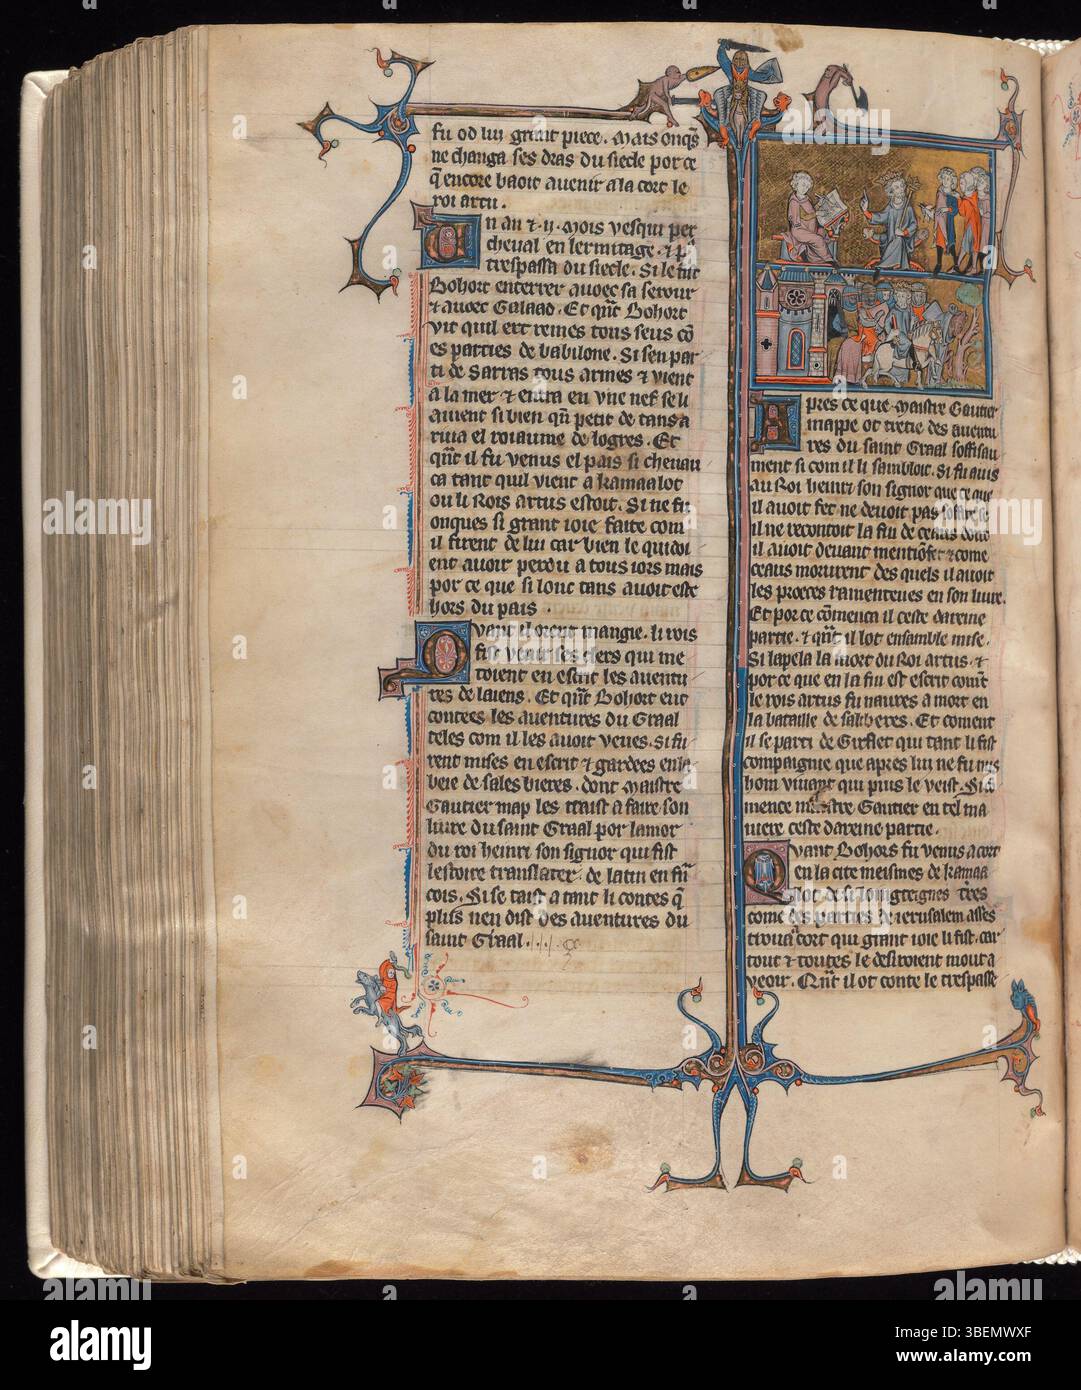 fu od lui grant piece. Mais onq̄s
ne changa ses dras du siecle por ce
q̄ encore baoit auenir a la cort le
roi artu.
Un an ⁊ .ij. Mois vesqui per
cheual en lermitage. ⁊ pͥ
trespassa du siecle. Si le fist
Bohort enterrer auoec sa serour
⁊ auoec Galaad. Et qn̄t Bohort
vit quil ert remes tous seus cō
es parties de babilone. Si sen par
ti de Sarras tous armes ⁊ vient
a la mer ⁊ entra en vne nef. se li
auient si bien qn̄ petit de tans a
riua el roiaume de logres. Et
qn̄t il fu venus el pais si cheuau
ca tant quil vient a kamaalot
ou li Rois artus estoit. Si ne fu
onques si grant ioie faite com
il firent de lui car bien le quidoi
ent auoir perdu a tous iors mais
por ce que si lonc tans auoit este
hors du pais.
Quant il orent mangie. li rois
fist venir ses clers qui me
toient en escrit les auentu
res de laiens. Et qn̄t Bohort eut
contees les auentures du Graal
teles com il les auoit veues. Si fu
rent mises en escrit ⁊ gardees en la
beie de salesbieres. dont Maistre
Gautier map les traist a faire son
liure du saint Graal por lamor
du roi henri son signor qui fist
lestoire translater. de latin en frā
cois. Si se taist a tant li contes q̄
plus nen dist des auentures du
saint Graal.
Apres ce que Maistre Gautier
mappe ot tretie des auentu
res du saint Graal soffisau
ment si com il li sambloit. Si fu auis
au Roi henri son signor que ce que
il auoit fet ne deuoit pas soffire se
il ne recontoit la fin de ceaus dont
il auoit deuant mention fet ⁊ come
ceaus morurent des quels il auoit
les proeces ramenteues en son liure.
Et por ce cōmenca il ceste dareine
partie. ⁊ qn̄t il lot ensamble mise.
Si lapela la mort du Roi artus. ⁊
por ce que en la fin est escrit comt̄
le rois artus fu naures a mort en
la bataille de salberes. Et coment
il se parti de Girflet qui tant li fist
compaignie que apres lui ne fu nus
hom viuant qui plus le veist. Si cō
mence maistre Gautier en tel ma
niere ceste dareine partie.
Quant Bohors fu venus a cort
en la cite meismes de kamaa
lot de si loingteignes tres
come des parties de ierusalem asses
troua a cort qui grant ioie li fist. car
tout ⁊ toutes le desiroient mout a
veoir. Qn̄t il ot conte le trespasse
alamy
Image ID: 3BEMWXF
www.alamy.com